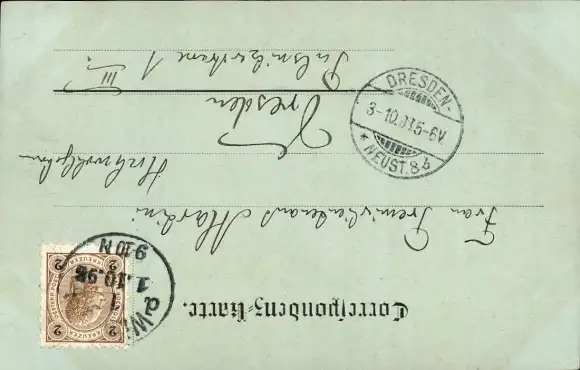 Correspondenz-Karte.
2 KREUZER 2
1.10.98
9.10 N
Frau Premierlieutenant Mardini
Hochwohlgeboren
Dresden
Pulsnitzerstrasse 1 III.
DRESDEN-
3-10.98 5-6V.
* NEUST. 8 d